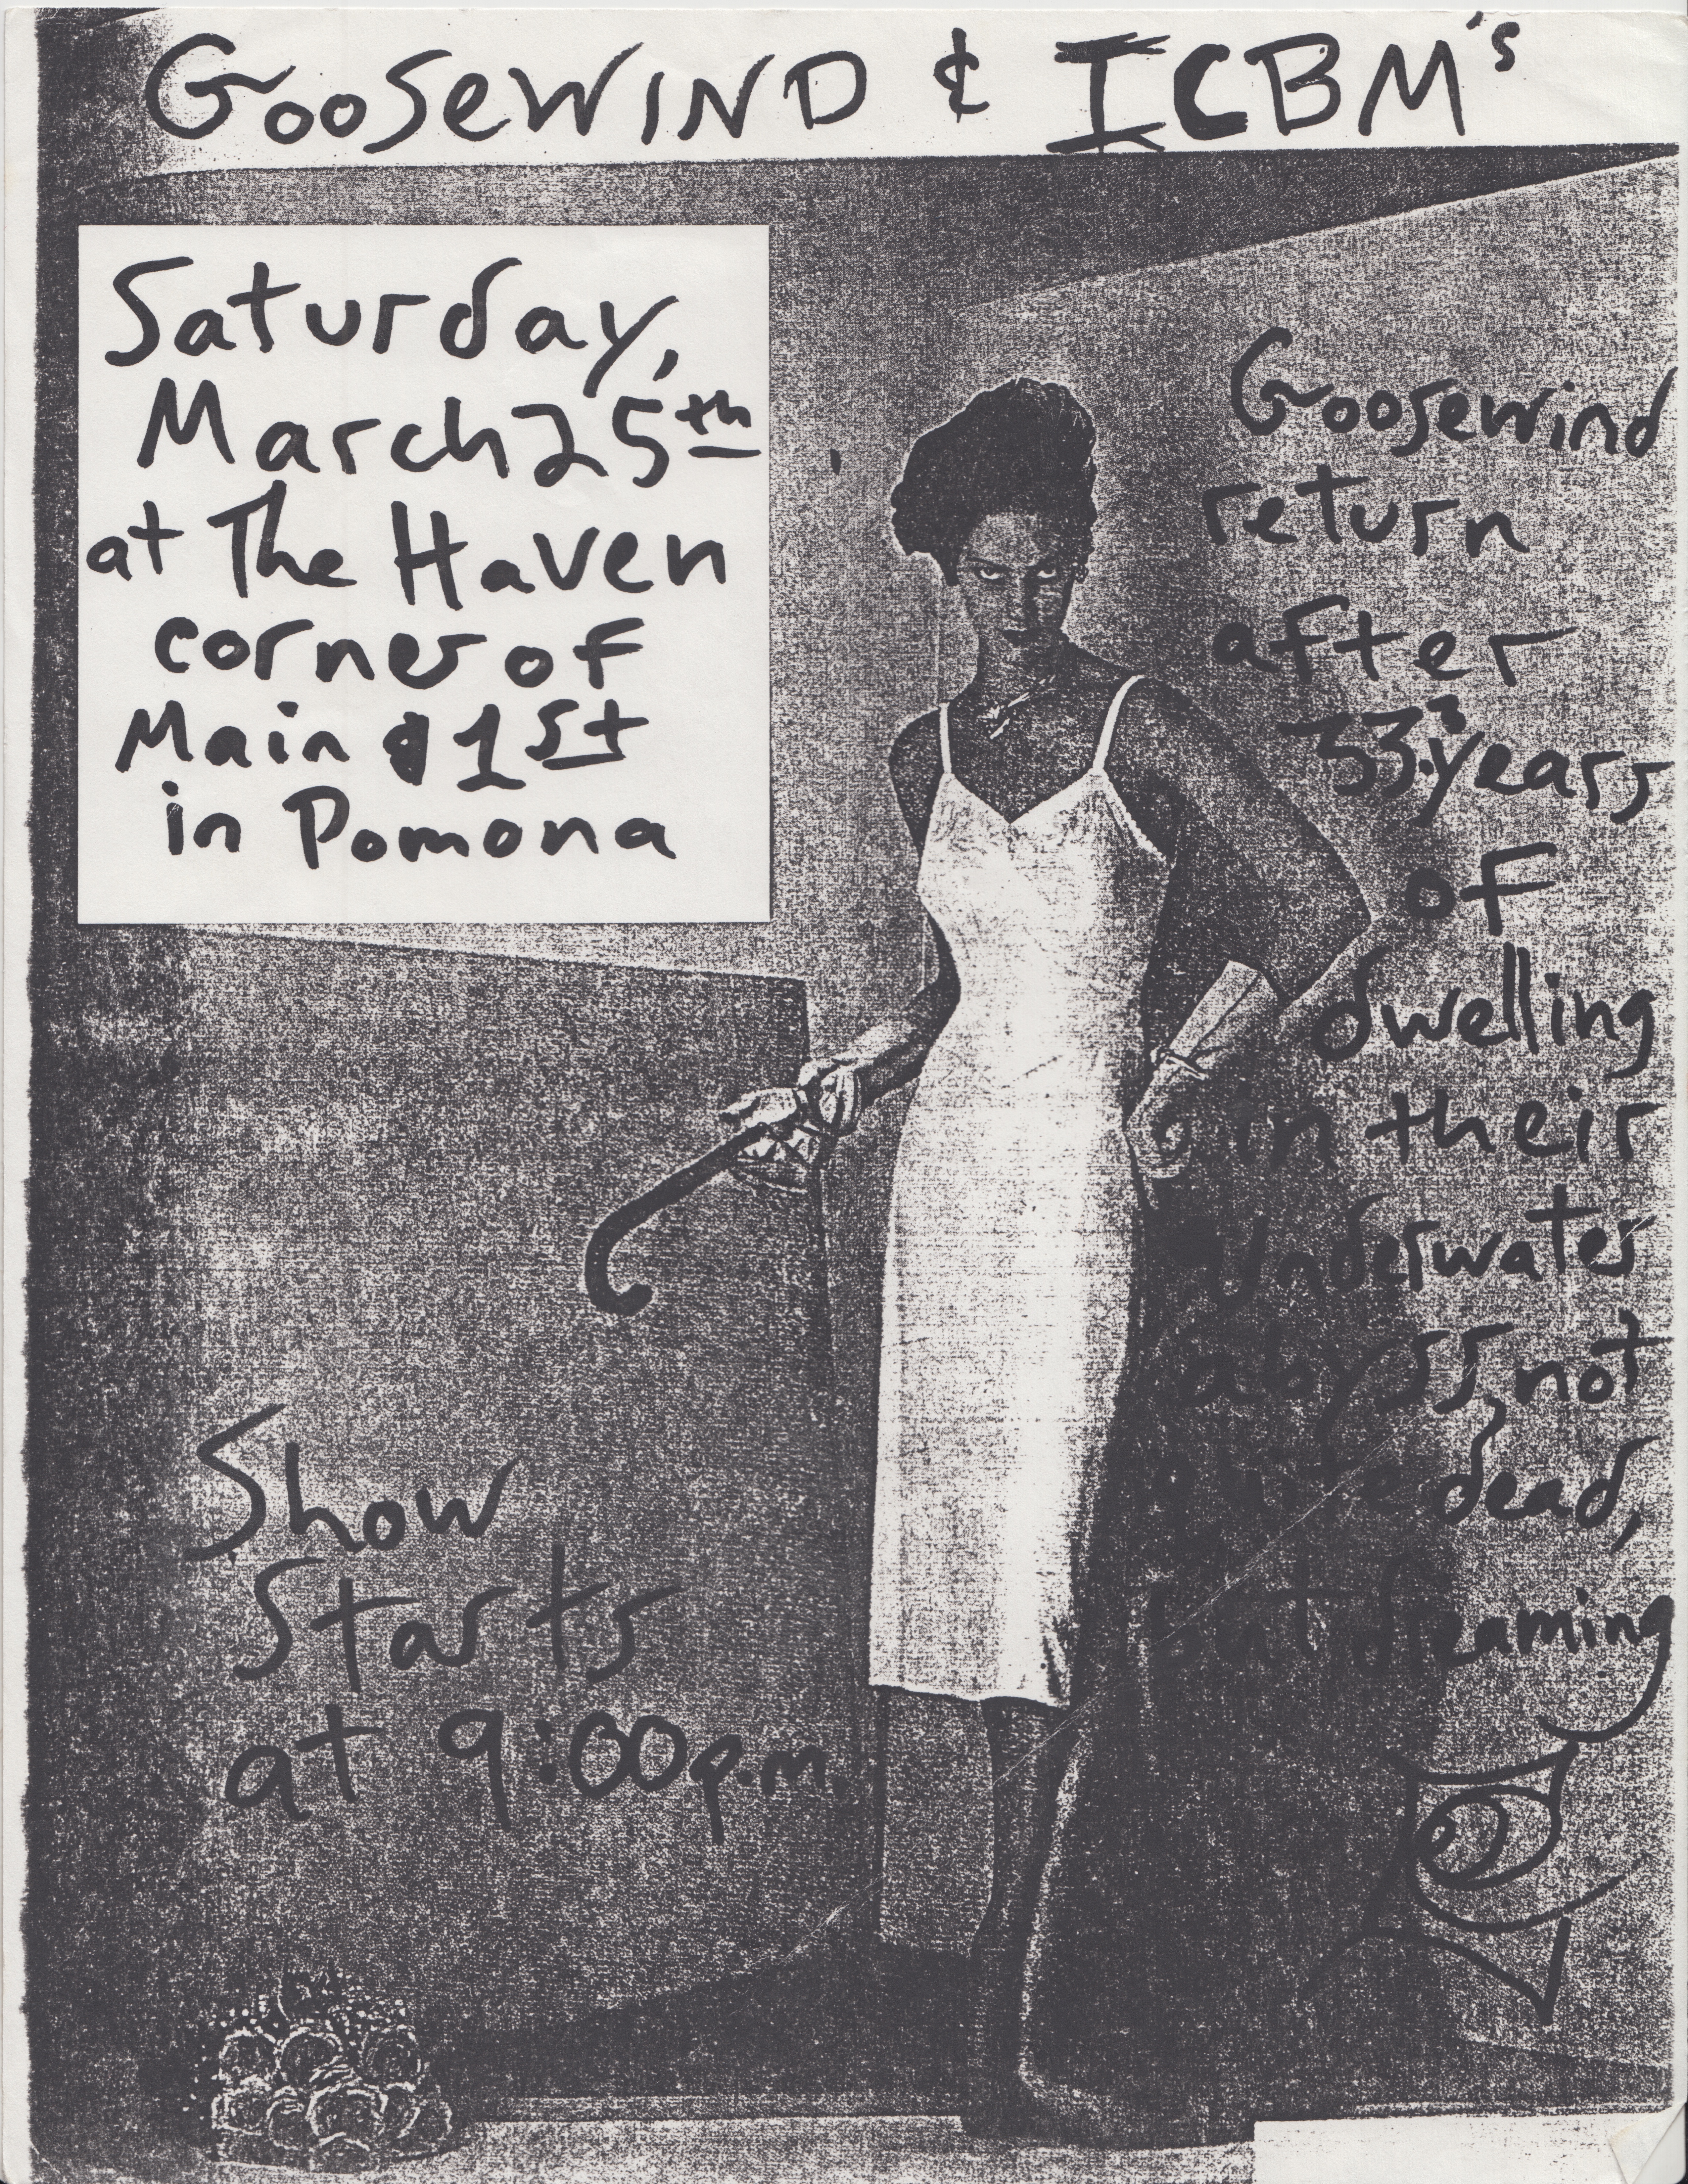 GOOSEWIND & ICBM's
Saturday,
March 25th
at The Haven
corner of
Main & 1st
in Pomona
Goosewind
return
after
years
of
dwelling
in their
underwater
abyss, not
quite dead,
but dreaming
Show
Starts
at 9:00p.m.